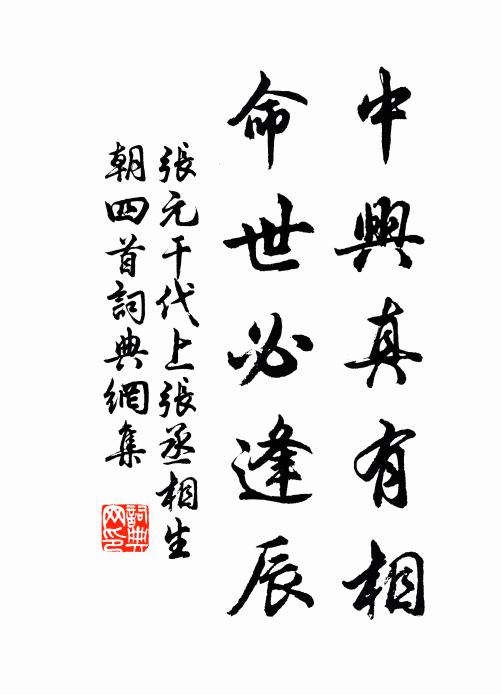 中興真有相
命世必逢辰
張元干代上張丞相生
朝四首詞典網集
詞典
网印